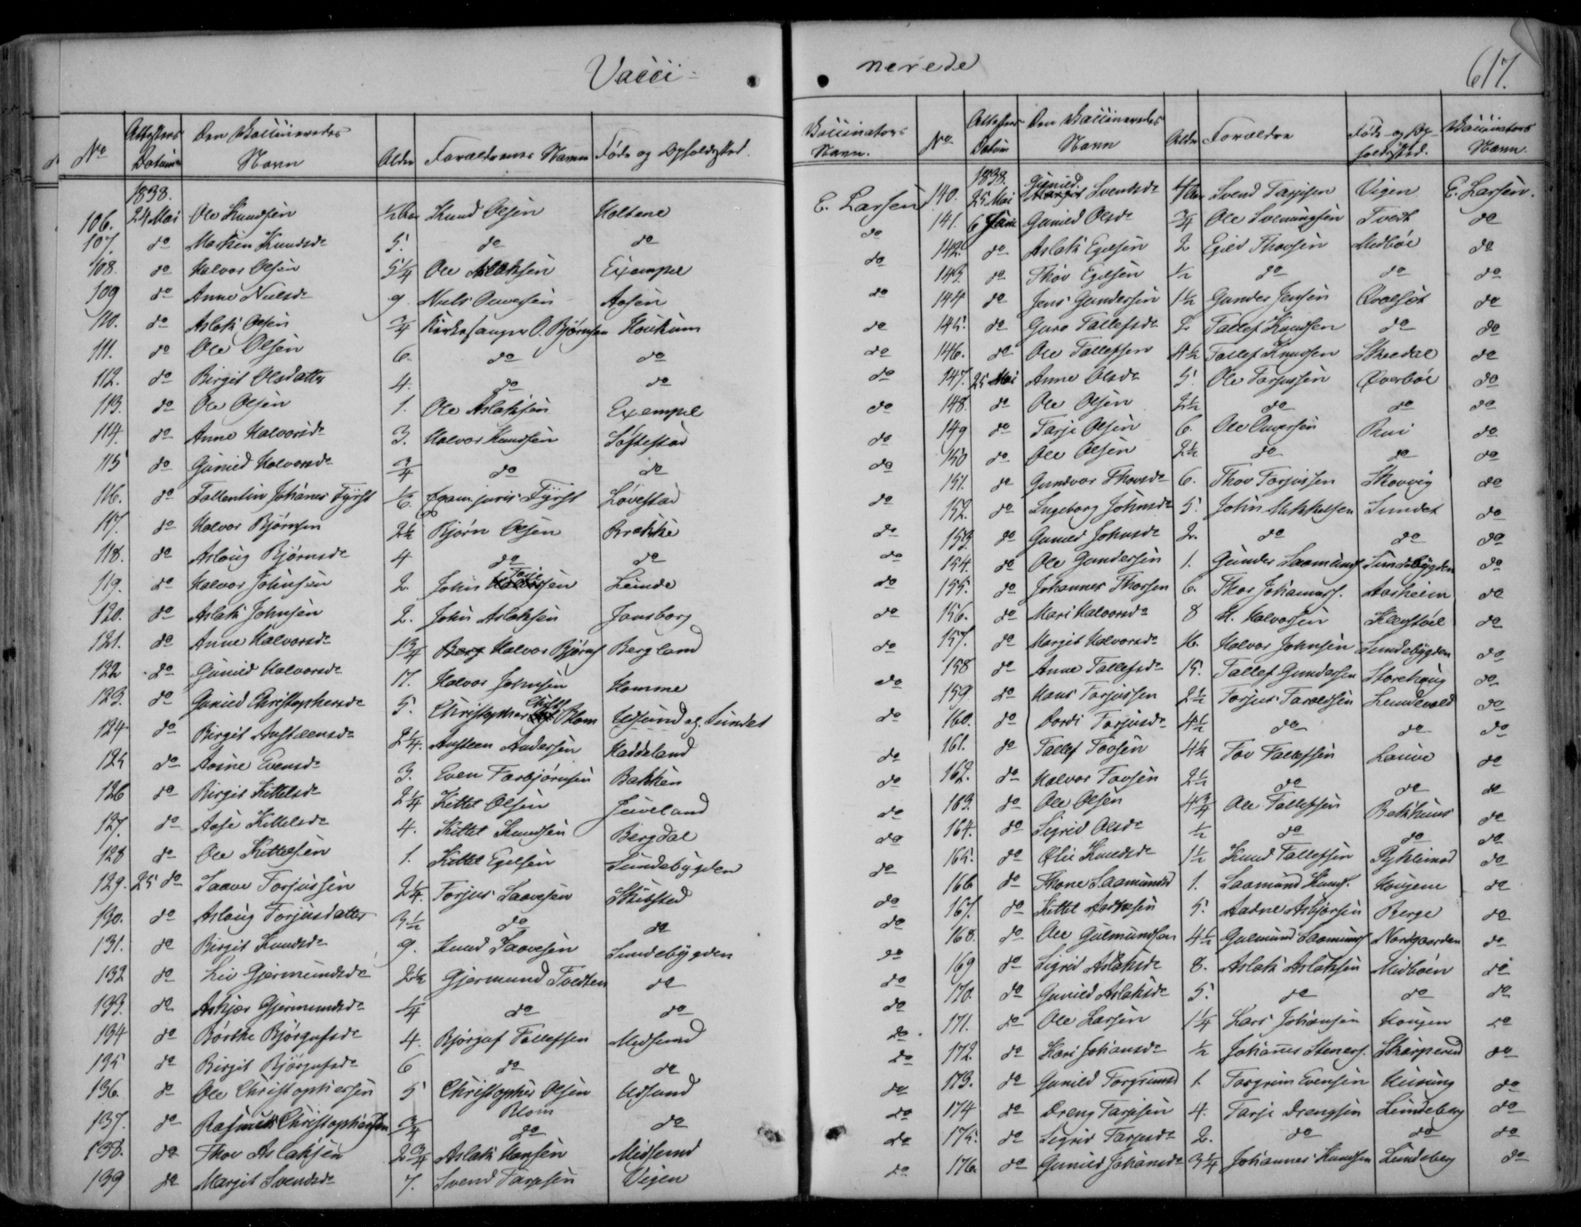 Vacci-
nerede
617.
No Attestens Datum Den Vaccineredes Navn Alder Forældrenes Navne Føde og Opholdssted. Vaccinators Navn.
1838.
106. 24 Mai Ole Knudsen Knud Olsen Holtene E. Larsen
107. do Knudsdr 5. do do do
108. do Halvor Olsen 5 1/4 Ole Aslaksen Exempel do
109 do Anne Nielsdr 9. Niels Aasen do
110. do Aslak Olsen 3/4 Kirkesanger O. Bjørnsen Houkum do
111. do Ole Olsen 6. do do do
112. do Birgit Olsdatter 4. do do do
113. do Ole Olsen 1. Ole Aslaksen Exempel do
114. do Anne Halvorsdr 3. Halvor Knudsen Søftestad do
115 do Gunild Halvorsdr 3/4 do do do
116. do Johannes Fyrst 1/6 Exam. juris Fyrst Løvestad do
117. do Halvor Bjørnsen 2 1/2 Bjørn Olsen Brække do
118. do Aslaug Bjørnsdr 4 do do do
119. do Halvor Johnsen 2. John Lunde do
120. do Aslak Johnsen 2. John Aslaksen Jonsborg do
121. do Anne Halvorsdr 1 3/4 Halvor Bjørns. Bergland do
122 do Gunild Halvorsdr 17. Halvor Johnsen Homme do
123. do Gunild Christophersdr 5. Christopher Blom Udsund og Sundet do
124 do Birgit Austeensdr 2 1/4. Austeen Andersen Haddeland do
125 do Aasne Evensdr 3. Even Torbjørnsen Bakken do
126 do Birgit Kittelsdr 2 1/4 Kittel Olsen Juveland do
127. do Aase Kittelsdr 4. Kittel Knudsen Bergdal do
128 do Ole Kittelsen 1. Kittel Egilsen Sundebygden do
129. 25 do Saave Torjussen 2 1/4 Torjus Saavesen do
130. do Aslaug Torjusdatter 3 1/2 do do do
131. do Birgit Knudsdr 9. Knud Saavesen Sundebygden do
132 do Liv Gjermundsdr 2 1/2 Gjermund Tvedten do do
133. do Gjermundsdr 1/4 do do do
134 do Børthe Bjørgufsdr 4. Bjørguf Tallefsen Midsund do
135 do Birgit Bjørgufsdr 6 do do do
136. do Ole Christophersen 5 Christopher Olsen Blom Udsund do
137. do Rasmus Christophersen 3/4 do do do
138. do Thov Aslaksen 2 3/4 Aslak Hansen Midsund do
139 do Margit Svendsdr 7. Svend Tarjesen Vigen do
No Attestens Datum Den Vaccineredes Navn Alder Forældre Føde- og Opholdssted. Vaccinators Navn.
1838.
140. 25 Mai Gunild Svendsdr Svend Tarjesen Vigen E. Larsen.
141. 6 Juni Gunild Olsdr 3/4 Ole Sveinungsen Tveit do
142. do Aslak Egilsen 2 Egild Thovsen Midbøe do
143. do Thov Egilsen 1/2 do do do
144 do Jens Gundersen 1 1/2 Gunder Jensen Qvalsot do
145. do Guro Tallefsdr 2. Tallef Knudsen do do
146. do Ole Tallefsen 4 1/2 Tallef Knudsen do
147. 25 Mai Anne Olsdr 5. Ole Torjussen Qverbøe do
148. do Ole Olsen 2 1/2 do do do
149 do Tarje Olsen 6. Ole Rui do
150 do Ole Olsen 2 1/2 do do do
151. do Gunvor Thovsdr 6. Thov Torjussen Skovvig do
152. do Ingeborg Johnsdr 5. John Mikkelsen Sundet do
153. do Gunild Johnsdr 2. do do do
154. do Ole Gundersen 1. Gunder Saamunds. Sundebygden do
155. do Johannes Thorsen 6. Thor Johannes. Aasheim do
156. do Mari Halvorsdr 8 H. Halvorsen do
157. do Margit Halvorsdr 16. Halvor Johnsen Sundebygden do
158 do Anne Tallefsdr 15. Tallef Gundersen Storehaug do
159 do Hans Torjussen 2 1/2 Torjus Taraldsen Lundevald do
160. do Dordi Torjusdr 4 1/2 do do do
161. do Tallef Tovsen 4 1/2 Tov Tallefsen Lauve do
162. do Halvor Tovsen 2 1/2 do do do
163. do Ole Olsen 4 3/4 Ole Tallefsen Bakhuus do
164. do Sigrid Olsdr 1/2 do do do
165. do Knudsdr 1 1/2 Knud Tallefsen do
166 do Thone Saamunds 1. Saamund Knuds. Haugene do
167. do Kittel 5. Aadne Asbjørsen Berge do
168. do Ole Gulmundsen 4 1/2 Gulmund Saamunds. Nordgaarden do
169 do Sigrid Aslaksdr 8. Aslak Aslaksen Midbøen do
170. do Gunild Aslaksdr 5. do do do
171. do Ole Larsen 1 1/4 Lars Johansen Haugen do
172. do Kari Johansdr 1/2 Johannes Steners. do
173. do Gunild Torgrimsd 1. Torgrim Evensen do
174 do Dreng Tarjesen 4. Tarje Drengsen Lundeberg do
175. do Sigrid Tarjesdr 2. do do do
176. do Gunild Johansdr 3 1/4 Johannes Knudsen Lundeberg do